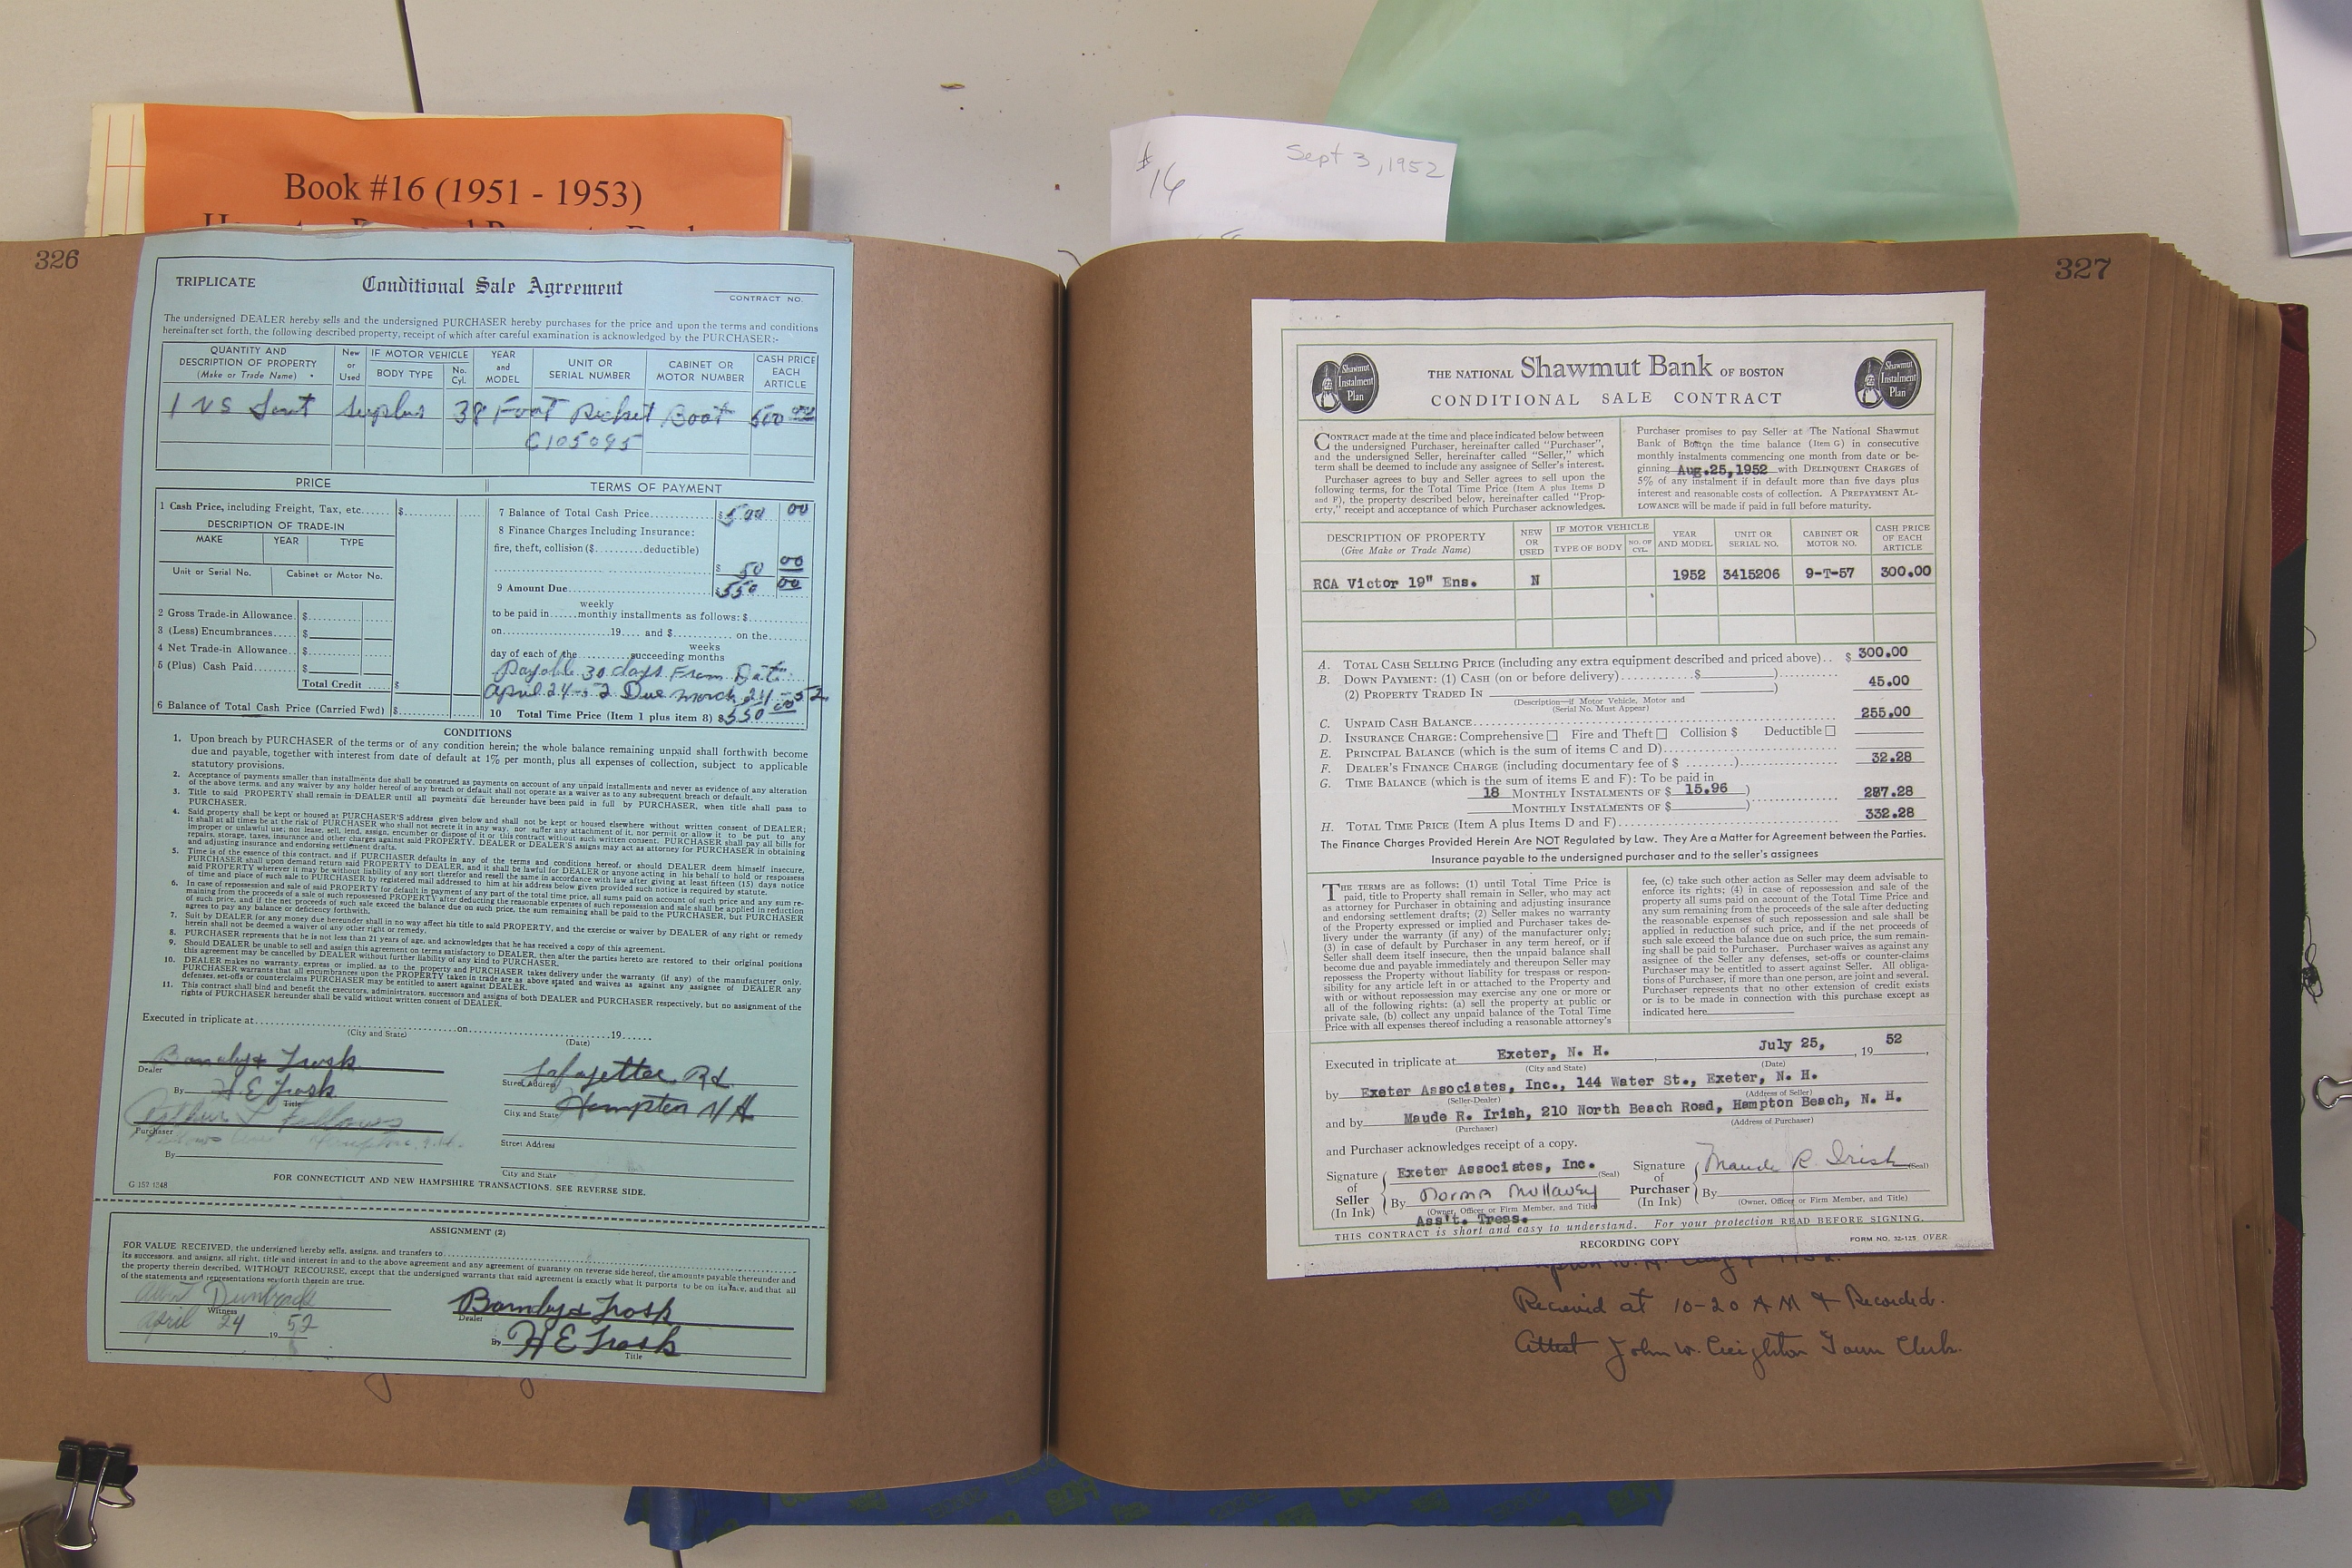 Book #16 (1951 - 1953)
# 16
Sept 3, 1952
326
TRIPLICATE
Conditional Sale Agreement
CONTRACT NO.
The undersigned DEALER hereby sells and the undersigned PURCHASER hereby purchases for the price and upon the terms and conditions
hereinafter set forth, the following described property, receipt of which after careful examination is acknowledged by the PURCHASER:-
QUANTITY AND DESCRIPTION OF PROPERTY (Make or Trade Name)
New or Used
IF MOTOR VEHICLE
BODY TYPE
No. Cyl.
YEAR and MODEL
UNIT OR SERIAL NUMBER
CABINET OR MOTOR NUMBER
CASH PRICE EACH ARTICLE
1 US Surplus 38 Foot Picket Boat 500 00
C105095
PRICE
1 Cash Price, including Freight, Tax, etc. $
DESCRIPTION OF TRADE-IN
MAKE YEAR TYPE
Unit or Serial No. Cabinet or Motor No.
2 Gross Trade-in Allowance. $
3 (Less) Encumbrances..... $
4 Net Trade-in Allowance... $
5 (Plus) Cash Paid........ $
Total Credit ..... $
6 Balance of Total Cash Price (Carried Fwd) $
TERMS OF PAYMENT
7 Balance of Total Cash Price $500 00
8 Finance Charges Including Insurance:
fire, theft, collision ($..........deductible)
$ 50 00
9 Amount Due $550 00
weekly
to be paid in......monthly installments as follows: $
on........................19.... and $............ on the.......
weeks
day of each of the..........succeeding months
Payable 30 days From Date:
April 24-52 Due March 24-52
10 Total Time Price (Item 1 plus item 8) $550 00
CONDITIONS
1. Upon breach by PURCHASER of the terms or of any condition herein; the whole balance remaining unpaid shall forthwith become
due and payable, together with interest from date of default at 1% per month, plus all expenses of collection, subject to applicable
statutory provisions.
2. Acceptance of payments smaller than installments due shall be construed as payments on account of any unpaid installments and never as evidence of any alteration
of the above terms, and any waiver by any holder hereof of any breach or default shall not operate as a waiver as to any subsequent breach or default.
3. Title to said PROPERTY shall remain in DEALER until all payments due hereunder have been paid in full by PURCHASER, when title shall pass to
PURCHASER.
4. Said property shall be kept or housed at PURCHASER'S address given below and shall not be kept or housed elsewhere without written consent of DEALER;
it shall at all times be at the risk of PURCHASER who shall not secrete it in any way, nor suffer any attachment of it, nor permit or allow it to be put to any
improper or unlawful use; nor lease, sell, lend, assign, encumber or dispose of it or this contract without such written consent. PURCHASER shall pay all bills for
repairs, storage, taxes, insurance and other charges against said PROPERTY. DEALER or DEALER'S assigns may act as attorney for PURCHASER in obtaining
and adjusting insurance and endorsing settlement drafts.
5. Time is of the essence of this contract, and if PURCHASER defaults in any of the terms and conditions hereof, or should DEALER deem himself insecure,
PURCHASER shall upon demand return said PROPERTY to DEALER, and it shall be lawful for DEALER or anyone acting in his behalf to hold or repossess
said PROPERTY wherever it may be without liability of any sort therefor and resell the same in accordance with law after giving at least fifteen (15) days notice
of time and place of such sale to PURCHASER by registered mail addressed to him at his address below given provided such notice is required by statute.
6. In case of repossession and sale of said PROPERTY for default in payment of any part of the total time price, all sums paid on account of such price and any sum re-
maining from the proceeds of a sale of such repossessed PROPERTY after deducting the reasonable expenses of such repossession and sale shall be applied in reduction
of such price, and if the net proceeds of such sale exceed the balance due on such price, the sum remaining shall be paid to the PURCHASER, but PURCHASER
agrees to pay any balance or deficiency forthwith.
7. Suit by DEALER for any money due hereunder shall in no way affect his title to said PROPERTY, and the exercise or waiver by DEALER of any right or remedy
herein shall not be deemed a waiver of any other right or remedy.
8. PURCHASER represents that he is not less than 21 years of age, and acknowledges that he has received a copy of this agreement.
9. Should DEALER be unable to sell and assign this agreement on terms satisfactory to DEALER, then after the parties hereto are restored to their original positions
this agreement may be cancelled by DEALER without further liability of any kind to PURCHASER.
10. DEALER makes no warranty, express or implied, as to the property and PURCHASER takes delivery under the warranty (if any) of the manufacturer only.
PURCHASER warrants that all encumbrances upon the PROPERTY taken in trade are as above stated and waives as against any assignee of DEALER any
defenses, set-offs or counterclaims PURCHASER may be entitled to assert against DEALER.
11. This contract shall bind and benefit the executors, administrators, successors and assigns of both DEALER and PURCHASER respectively, but no assignment of the
rights of PURCHASER hereunder shall be valid without written consent of DEALER.
Executed in triplicate at..............................on..............................19......
(City and State) (Date)
Dealer
By H E Trosk
Title
Arthur L Fellows
Purchaser
By
Lafayette Rd
Street Address
Hampton N H
City and State
Street Address
City and State
G 152 1248
FOR CONNECTICUT AND NEW HAMPSHIRE TRANSACTIONS. SEE REVERSE SIDE.
ASSIGNMENT (2)
FOR VALUE RECEIVED, the undersigned hereby sells, assigns, and transfers to
its successors, and assigns, all right, title and interest in and to the above agreement and any agreement of guaranty on reverse side hereof, the amounts payable thereunder and
the property therein described, WITHOUT RECOURSE, except that the undersigned warrants that said agreement is exactly what it purports to be on its face, and that all
of the statements and representations set forth therein are true.
Witness
April 24 19 52
Dealer
By H E Trosk
Title
327
Shawmut Instalment Plan
THE NATIONAL Shawmut Bank OF BOSTON
CONDITIONAL SALE CONTRACT
Shawmut Instalment Plan
CONTRACT made at the time and place indicated below between
the undersigned Purchaser, hereinafter called "Purchaser",
and the undersigned Seller, hereinafter called "Seller," which
term shall be deemed to include any assignee of Seller's interest.
Purchaser agrees to buy and Seller agrees to sell upon the
following terms, for the Total Time Price (Item A plus Items D
and F), the property described below, hereinafter called "Prop-
erty," receipt and acceptance of which Purchaser acknowledges.
Purchaser promises to pay Seller at The National Shawmut
Bank of Boston the time balance (Item G) in consecutive
monthly instalments commencing one month from date or be-
ginning Aug.25,1952 with DELINQUENT CHARGES of
5% of any instalment if in default more than five days plus
interest and reasonable costs of collection. A PREPAYMENT AL-
LOWANCE will be made if paid in full before maturity.
DESCRIPTION OF PROPERTY (Give Make or Trade Name)
NEW OR USED
IF MOTOR VEHICLE
TYPE OF BODY
NO. OF CYL.
YEAR AND MODEL
UNIT OR SERIAL NO.
CABINET OR MOTOR NO.
CASH PRICE OF EACH ARTICLE
RCA Victor 19" Ens. N 1952 3415206 9-T-57 300.00
A. TOTAL CASH SELLING PRICE (including any extra equipment described and priced above).. $ 300.00
B. DOWN PAYMENT: (1) CASH (on or before delivery)...........$____________)
(2) PROPERTY TRADED IN ____________) 45.00
(Description—if Motor Vehicle, Motor and
Serial No. Must Appear)
C. UNPAID CASH BALANCE 255.00
D. INSURANCE CHARGE: Comprehensive □ Fire and Theft □ Collision $ Deductible □
E. PRINCIPAL BALANCE (which is the sum of items C and D)
F. DEALER'S FINANCE CHARGE (including documentary fee of $ ........) 32.28
G. TIME BALANCE (which is the sum of items E and F): To be paid in
18 MONTHLY INSTALMENTS OF $ 15.96 )
MONTHLY INSTALMENTS OF $ ) 287.28
H. TOTAL TIME PRICE (Item A plus Items D and F) 332.28
The Finance Charges Provided Herein Are NOT Regulated by Law. They Are a Matter for Agreement between the Parties.
Insurance payable to the undersigned purchaser and to the seller's assignees
THE TERMS are as follows: (1) until Total Time Price is
paid, title to Property shall remain in Seller, who may act
as attorney for Purchaser in obtaining and adjusting insurance
and endorsing settlement drafts; (2) Seller makes no warranty
of the Property expressed or implied and Purchaser takes de-
livery under the warranty (if any) of the manufacturer only;
(3) in case of default by Purchaser in any term hereof, or if
Seller shall deem itself insecure, then the unpaid balance shall
become due and payable immediately and thereupon Seller may
repossess the Property without liability for trespass or respon-
sibility for any article left in or attached to the Property and
with or without repossession may exercise any one or more or
all of the following rights: (a) sell the property at public or
private sale, (b) collect any unpaid balance of the Total Time
Price with all expenses thereof including a reasonable attorney's
fee, (c) take such other action as Seller may deem advisable to
enforce its rights; (4) in case of repossession and sale of the
property all sums paid on account of the Total Time Price and
any sum remaining from the proceeds of the sale after deducting
the reasonable expenses of such repossession and sale shall be
applied in reduction of such price, and if the net proceeds of
such sale exceed the balance due on such price, the sum remain-
ing shall be paid to Purchaser. Purchaser waives as against any
assignee of the Seller any defenses, set-offs or counter-claims
Purchaser may be entitled to assert against Seller. All obliga-
tions of Purchaser, if more than one person, are joint and several.
Purchaser represents that no other extension of credit exists
or is to be made in connection with this purchase except as
indicated here
Executed in triplicate at Exeter, N. H. , July 25, , 19 52 ,
(City and State) (Date)
by Exeter Associates, Inc., 144 Water St., Exeter, N. H.
(Seller-Dealer) (Address of Seller)
and by Maude R. Irish, 210 North Beach Road, Hampton Beach, N. H.
(Purchaser) (Address of Purchaser)
and Purchaser acknowledges receipt of a copy.
Signature of Seller (In Ink)
Exeter Associates, Inc. (Seal)
By Norma Mullavey
(Owner, Officer or Firm Member, and Title)
Ass't. Treas.
Signature of Purchaser (In Ink)
Maude R. Irish (Seal)
By
(Owner, Officer or Firm Member, and Title)
THIS CONTRACT is short and easy to understand. For your protection READ BEFORE SIGNING.
RECORDING COPY
FORM NO. 32-125 OVER
Recieved at 10-20 AM & Recorded.
Attest John W. Creighton Town Clerk.